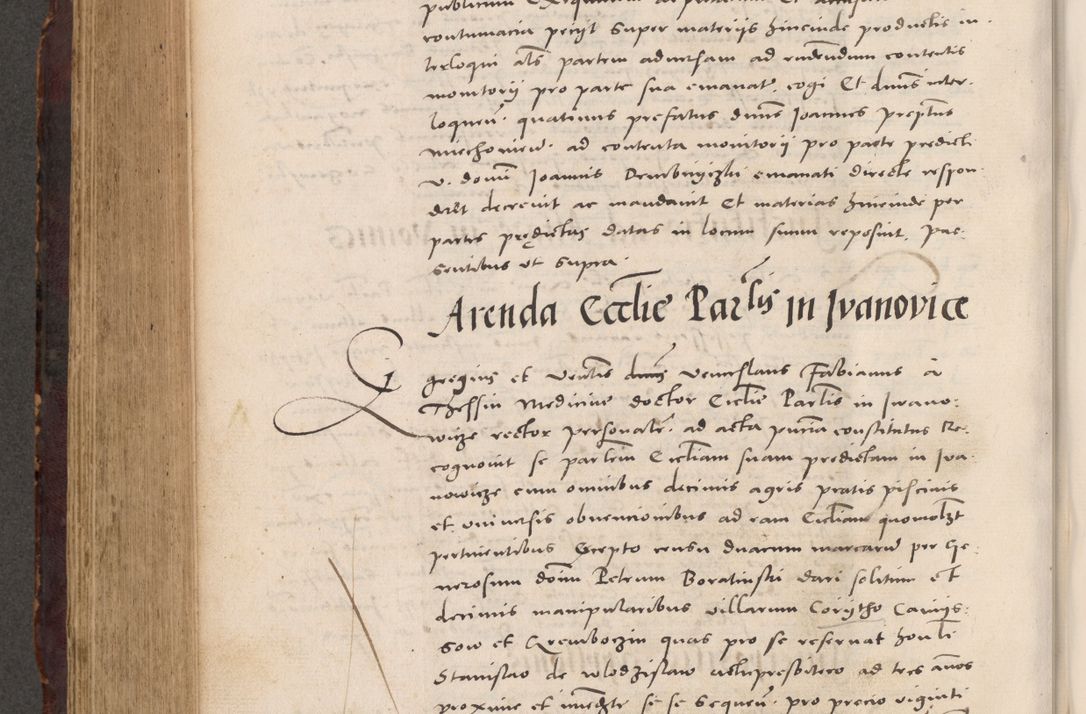 contumacia petijt super materijs hincinde productis in
terloqui als partem adversam ad reddendum contentis
monitorij pro parte sua emanat. cogi Et dnus inter
loquen. quatinus prefatus dnus Joannes preptus
miechovien. ad contenta monitorij pro parte predicti
v. domi Joannis emanati directe respon
deat decrevit ac mandavit Et materias hincinde per
partes prędictas datas in locum suum reposuit. Pre
sentibus ut supra.
Arenda Ecclie Parlis in Jvanovice
Egregius et venlis dnus venceslaus Fabianus a
Thessin Medicine doctor Ecclie Parlis in Jvano
wicze rector personalr. ad acta puncia constitutus Re
cognovit se parlem Eccliam suam predictam in Jva
nowicze cum omnibus decimis agris pratis piscinis
et universis obvencionibus ad eam Eccliam quomolzt
pertinentibus Excepto censu duarum marcarum per Ge
nerosum domi Petrum Boratinski dari solitum et
decimis manipularibus villarum
sow et quas pro se reservat honli
Stanislao de wlodzislaw vicepresbitero ad tres annos
proxime et immedte se se sequen. pro precio viginti